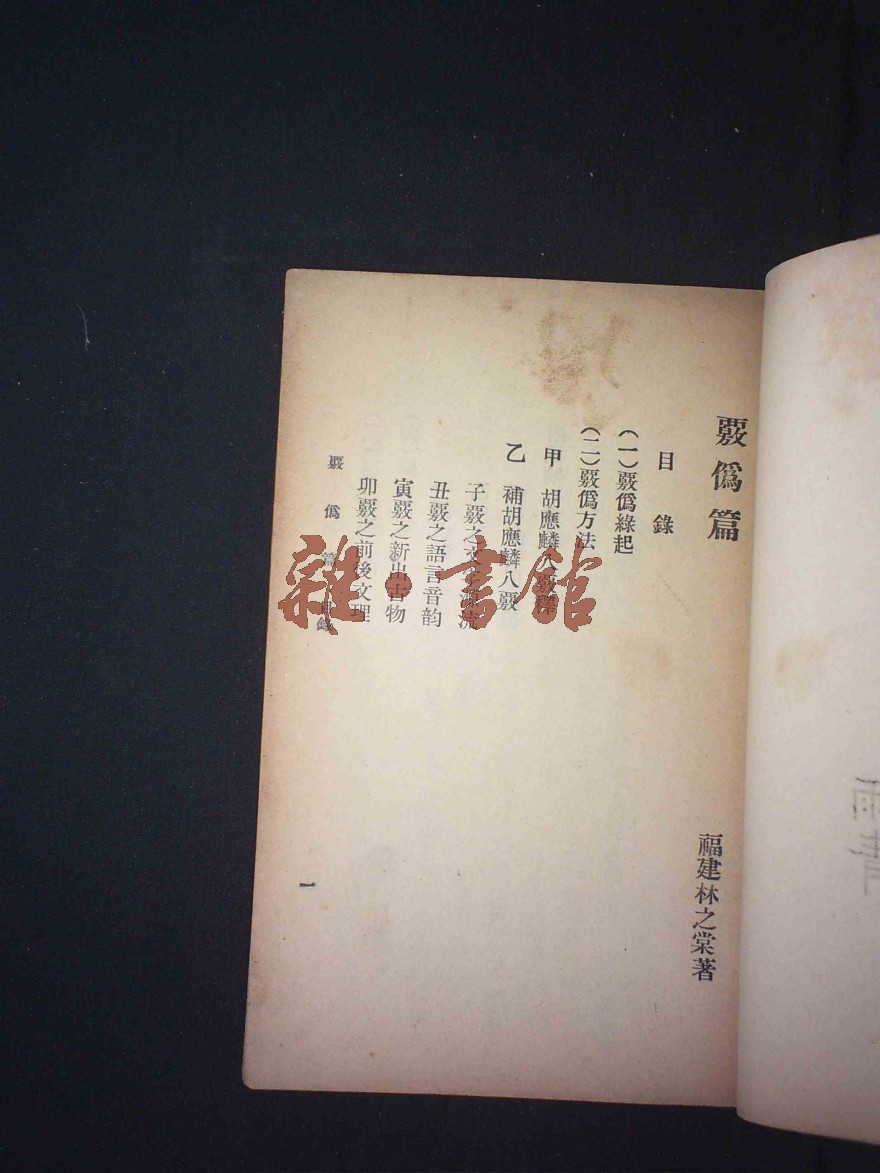 覈僞篇
福建林之棠著
目錄
(一)覈僞緣起
(二)覈僞方法
甲 胡應麟八覈釋
乙 補胡應麟八覈
子覈之文源流
丑覈之語言音韵
寅覈之新出古物
卯覈之前後文理
覈僞篇 目錄
一
雜·書館